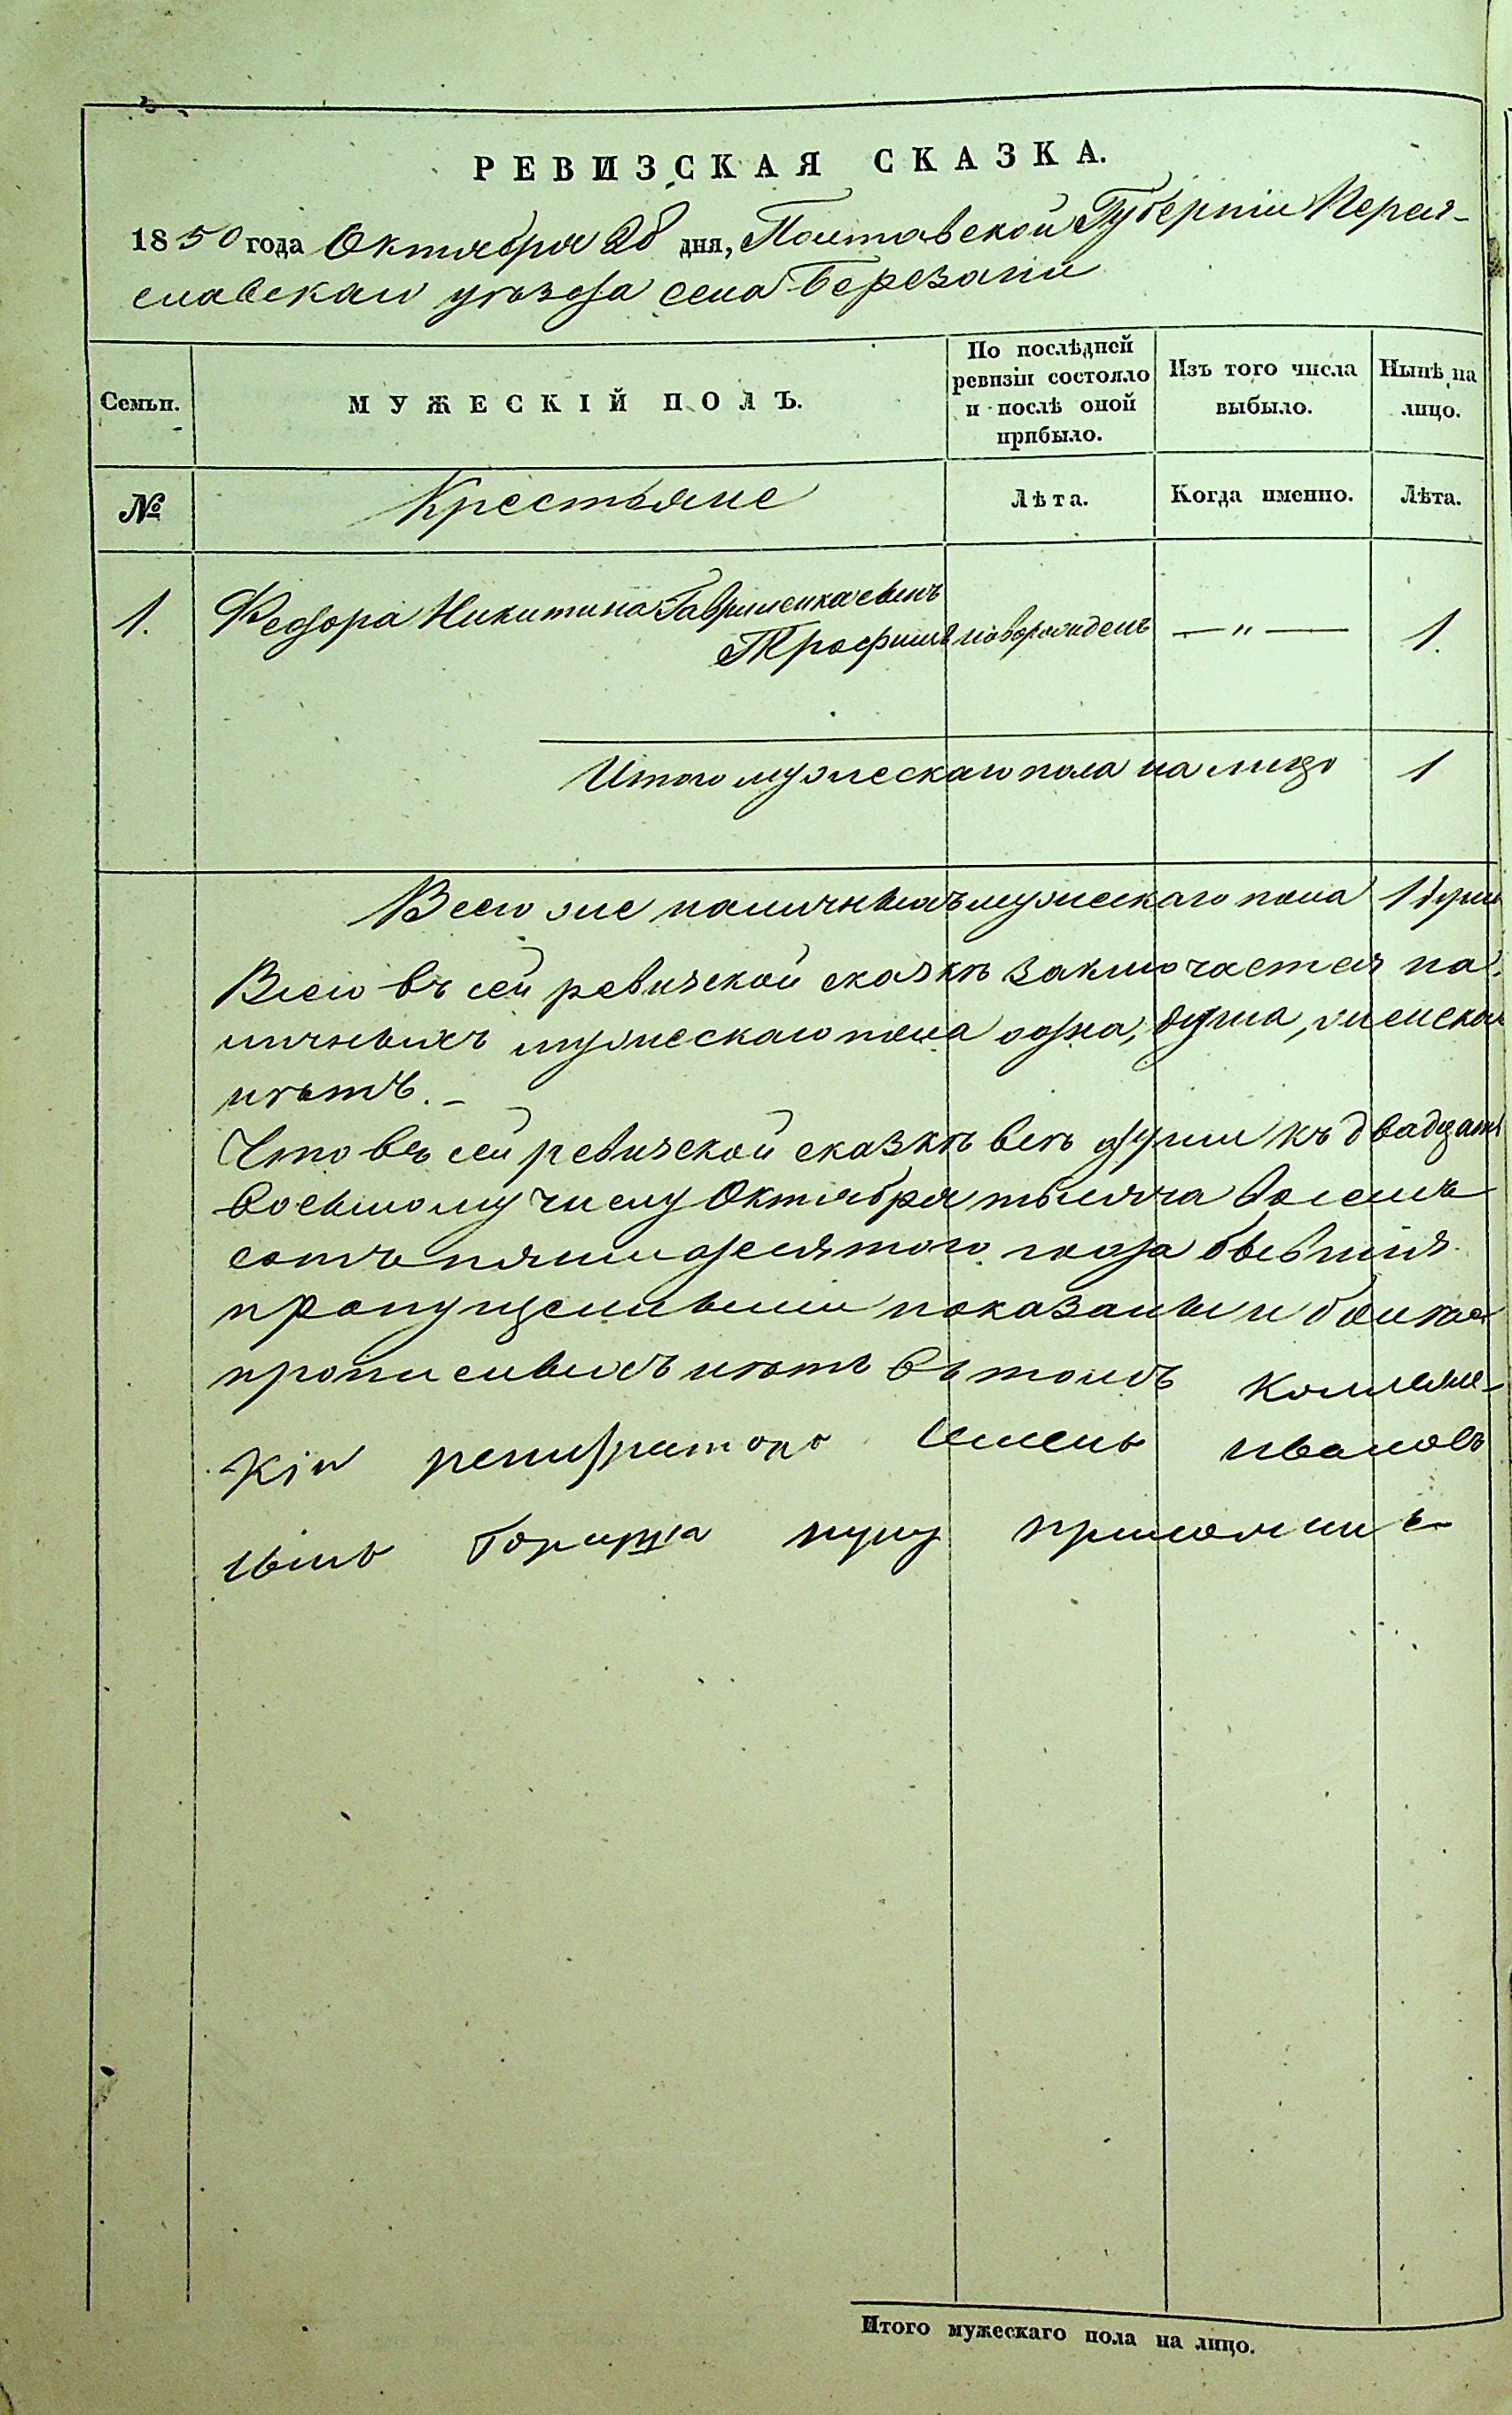 РЕВИЗСКАЯ СКАЗКА.
1850 года Октября 28 дня, Полтавской Губерніи Перея-
славскаго уѣзда села Березани
Семьи. МУЖЕСКІЙ ПОЛЪ. По послѣдней ревизіи состояло и послѣ оной прибыло. Изъ того числа выбыло. Нынѣ на лицо.
№ Крестьяне Лѣта. Когда именно. Лѣта.
1. Федора Никитина Гавриленка сынъ
Трофимъ новорожденъ — " — 1.
Итого мужескаго пола на лицо 1
Всего же наличныхъ мужескаго пола 1 душа
Всего въ сей ревизской сказкѣ заключается на-
личныхъ мужескаго пола одна душа, женскаго
нѣтъ. –
Что въ сей ревизской сказкѣ всѣ души къ двадцать
восьмому числу Октября тысяча восемь
сотъ пятидесятого года бывшія
пропущенными показаны и болѣе
прописныхъ нѣтъ въ томъ Коллежс-
кій регистраторъ Семенъ Ивановъ
сынъ руку приложилъ
Итого мужескаго пола на лицо.